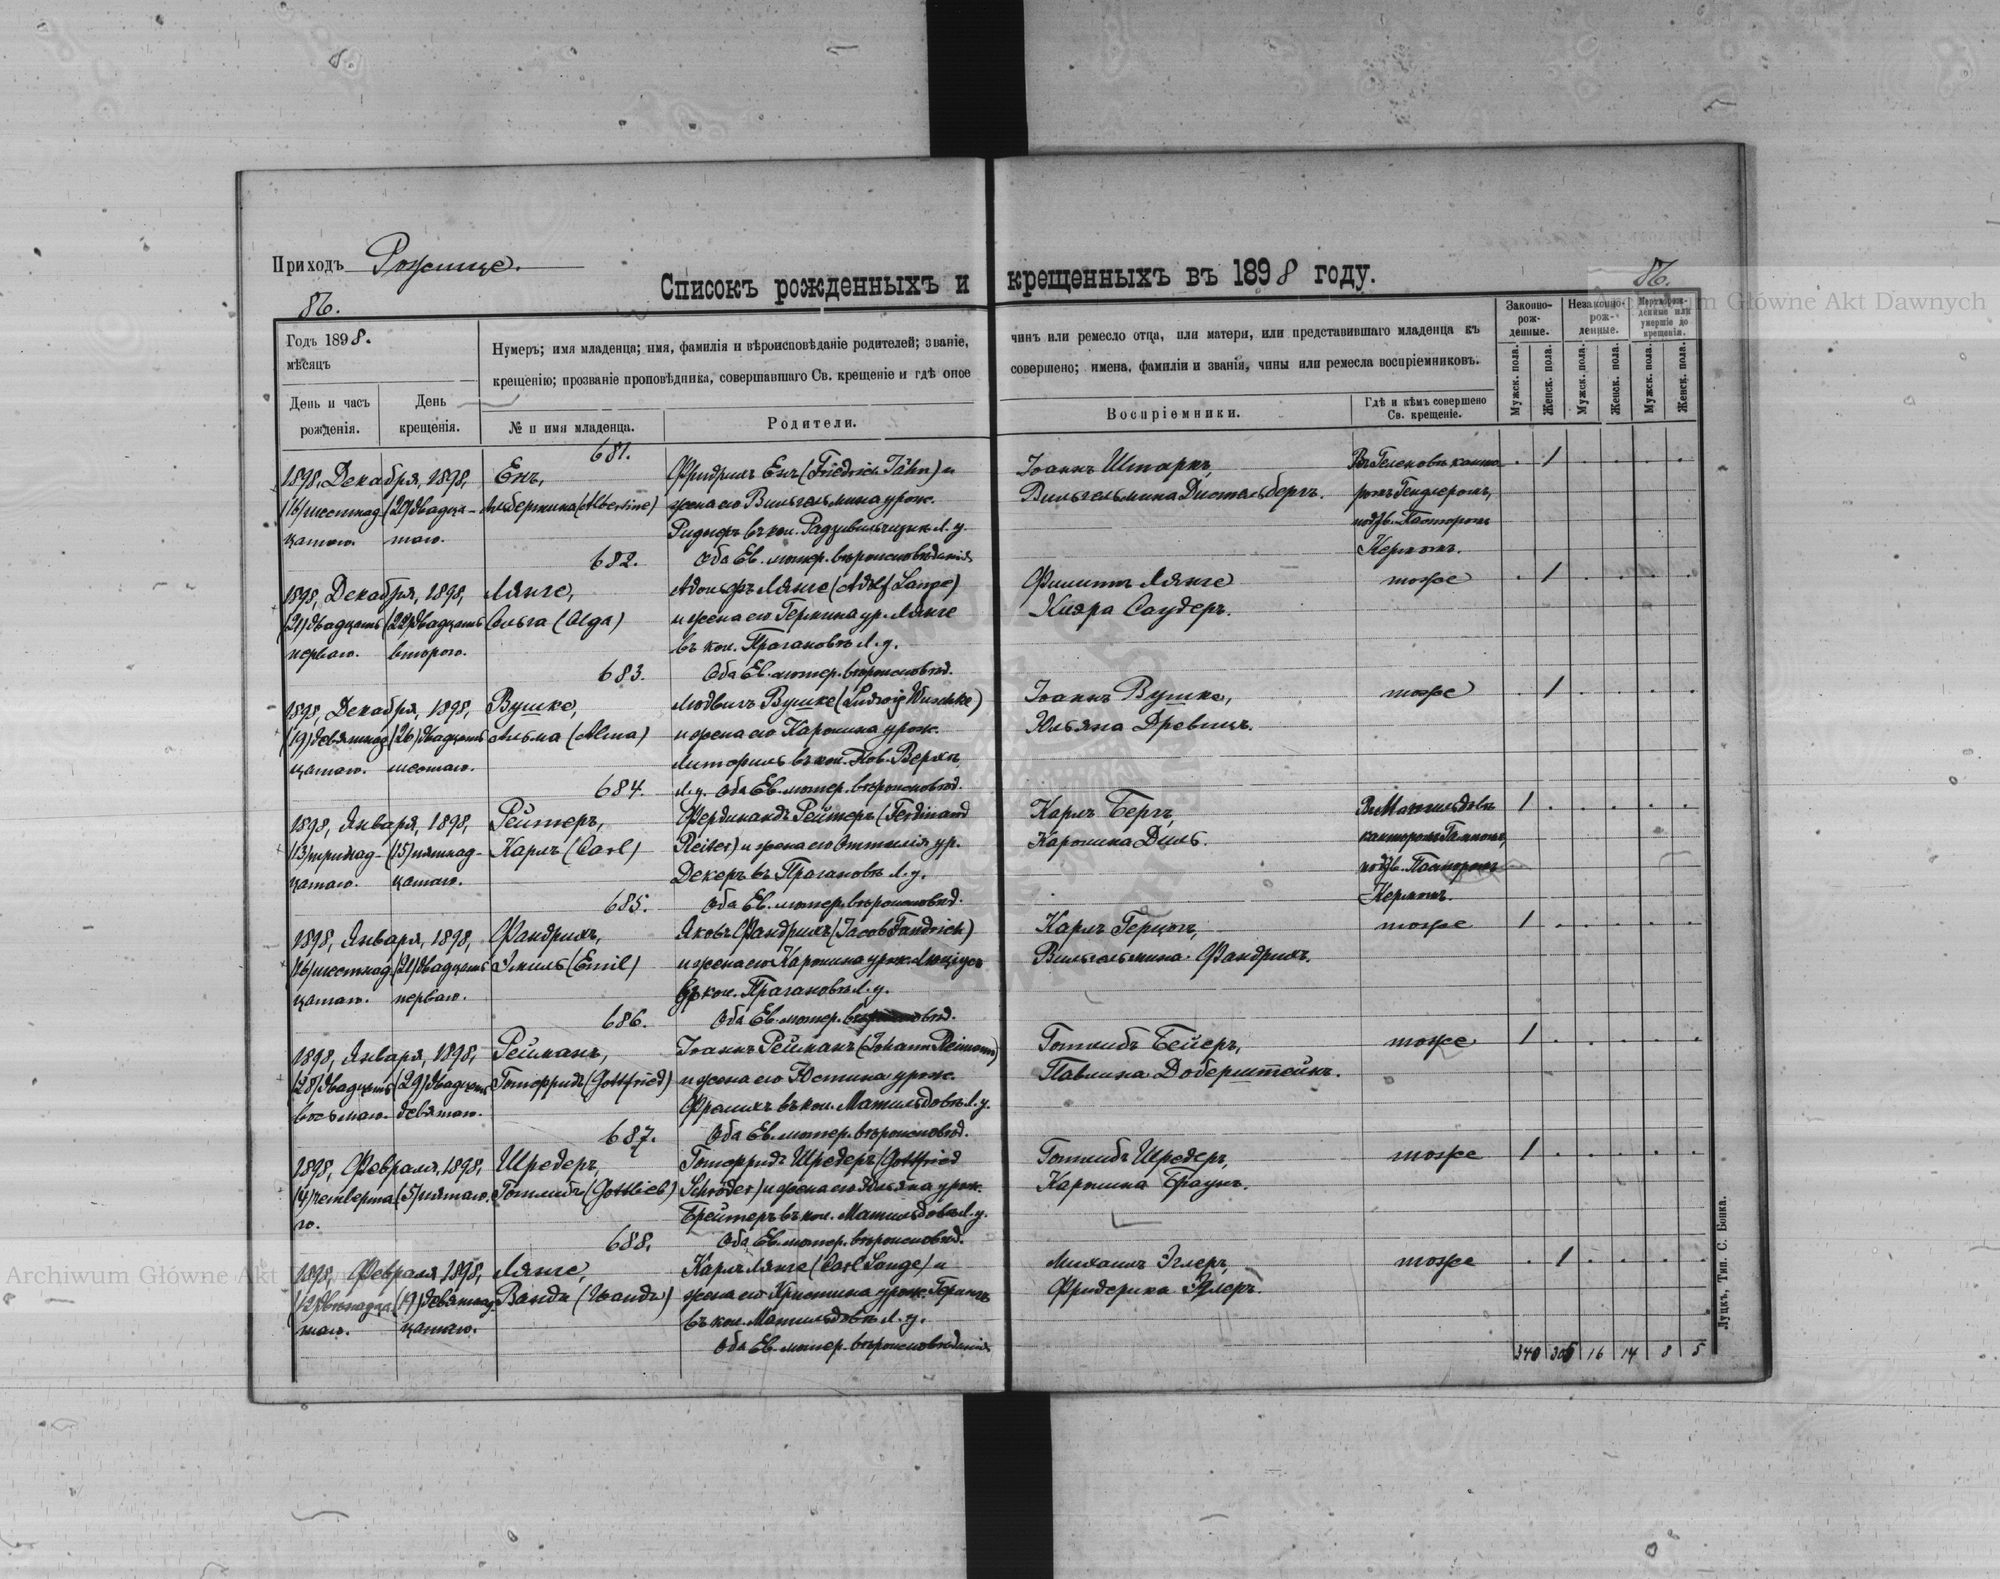 Приходъ Рожище.
Списокъ рожденныхъ и крещенныхъ въ 1898 году.
86.
86.
Archiwum Główne Akt Dawnych
Годъ 1898.
мѣсяцъ
День и часъ рожденія.
День крещенія.
Нумеръ; имя младенца; имя, фамилія и вѣроисповѣданіе родителей; званіе,
чинъ или ремесло отца, или матери, или представившаго младенца къ
крещенію; прозваніе проповѣдника, совершавшаго Св. крещеніе и гдѣ оное
совершено; имена, фамиліи и званія, чины или ремесла воспріемниковъ.
№ п имя младенца.
Родители.
Воспріемники.
Гдѣ и кѣмъ совершено Св. крещеніе.
Законно-рож-денные.
Незаконно-рож-денные.
Мертворож-денные или умершіе до крещенія.
Мужск. пола.
Женск. пола.
Мужск. пола.
Женск. пола.
Мужск. пола.
Женск. пола.
681.
1898, Декабря, 1898, Енъ, Фридрихъ Енъ (Friedrich Jähn) и Іоаннъ Штаркъ, 1
(16) шестнад- (29) двадца- Альбертина (Albertine) жена его Вильгельмина урож. Вильгельмина Дистельбергъ.
цатаго. таго. въ кол. л. у. подзв. Пасторомъ
682. Оба Ев. лютер. вѣроисповѣданія Керномъ.
1898, Декабря, 1898, Лянге, Адольфъ Лянге (Adolf Lange) Филиппъ Лянге тоже 1
(21) двадцать (22) двадцать Ольга (Olga) и жена его Гермина ур. Лянге Клара Саудеръ.
перваго. второго. въ кол. Прагановъ л. у.
683. Оба Ев. лютер. вѣроисповѣд.
1898, Декабря, 1898, Вушке, Людвигъ Вушке (Ludwig Wuschke) Іоаннъ Вушке, тоже 1
(19) девятнад (26) двадцать Альма (Alma) и жена его Каролина урож. Юльяна Древицъ.
цатаго. шестаго. въ кол. Нов.
684. л. у. Оба Ев. лютер. вѣроисповѣд.
1898, Января, 1898, Рейтеръ, Фердинандъ Рейтеръ (Ferdinand Карлъ Бергъ, Въ Матильдовѣ 1
(13) тринад- (15) пятнад- Карлъ (Carl) Reiter) и жена его Оттилія ур. Каролина Диль. канторомъ
цатаго. цатаго. Декеръ въ Прагановѣ л. у. подзв. Пасторомъ
685. Оба Ев. лютер. вѣроисповѣд. Керномъ.
1898, Января, 1898, Фандрихъ, Яковъ Фандрихъ (Jacob Fandrich) Карлъ Герцогъ, тоже 1
(16) шестнад (21) двадцать Эмиль (Emil) и жена его Каролина урож. Вильгельмина Фандрихъ.
цатаго. перваго. въ кол. Прагановъ л. у.
686. Оба Ев. лютер. вѣроисповѣд.
1898, Января, 1898, Рейманъ, Іоаннъ Рейманъ (Johann Reimann) Готлибъ Бейеръ, тоже 1
(28) двадцать (29) двадцать Готфридъ (Gottfried) и жена его Юстина урож. Павлина Доберштейнъ.
восьмаго. девятаго. въ кол. Матильдовъ л. у.
687. Оба Ев. лютер. вѣроисповѣд.
1898, Февраля, 1898, Шредеръ, Готфридъ Шредеръ (Gottfried Готлибъ Шредеръ, тоже 1
(4) четверта (5) пятаго. Готлибъ (Gottlieb) Schröder) и жена его Юльяна урож. Каролина Браунъ.
го. Брейтеръ въ кол. Матильдовъ л. у.
688. Оба Ев. лютер. вѣроисповѣд.
1898, Февраля 1898, Лянге, Карлъ Лянге (Carl Lange) и Михаилъ Эглеръ, тоже 1
(12) двѣнадца (19) девятнад Ванда (Wanda) жена его Христина урож. Герингъ Фридерика Эглеръ.
таго. цатаго. въ кол. Матильдовѣ л. у.
Оба Ев. лютер. вѣроисповѣданія
340 305 16 14 8 5
Луцкъ, Тип. С. Бонка.
Archiwum Główne Akt Dawnych